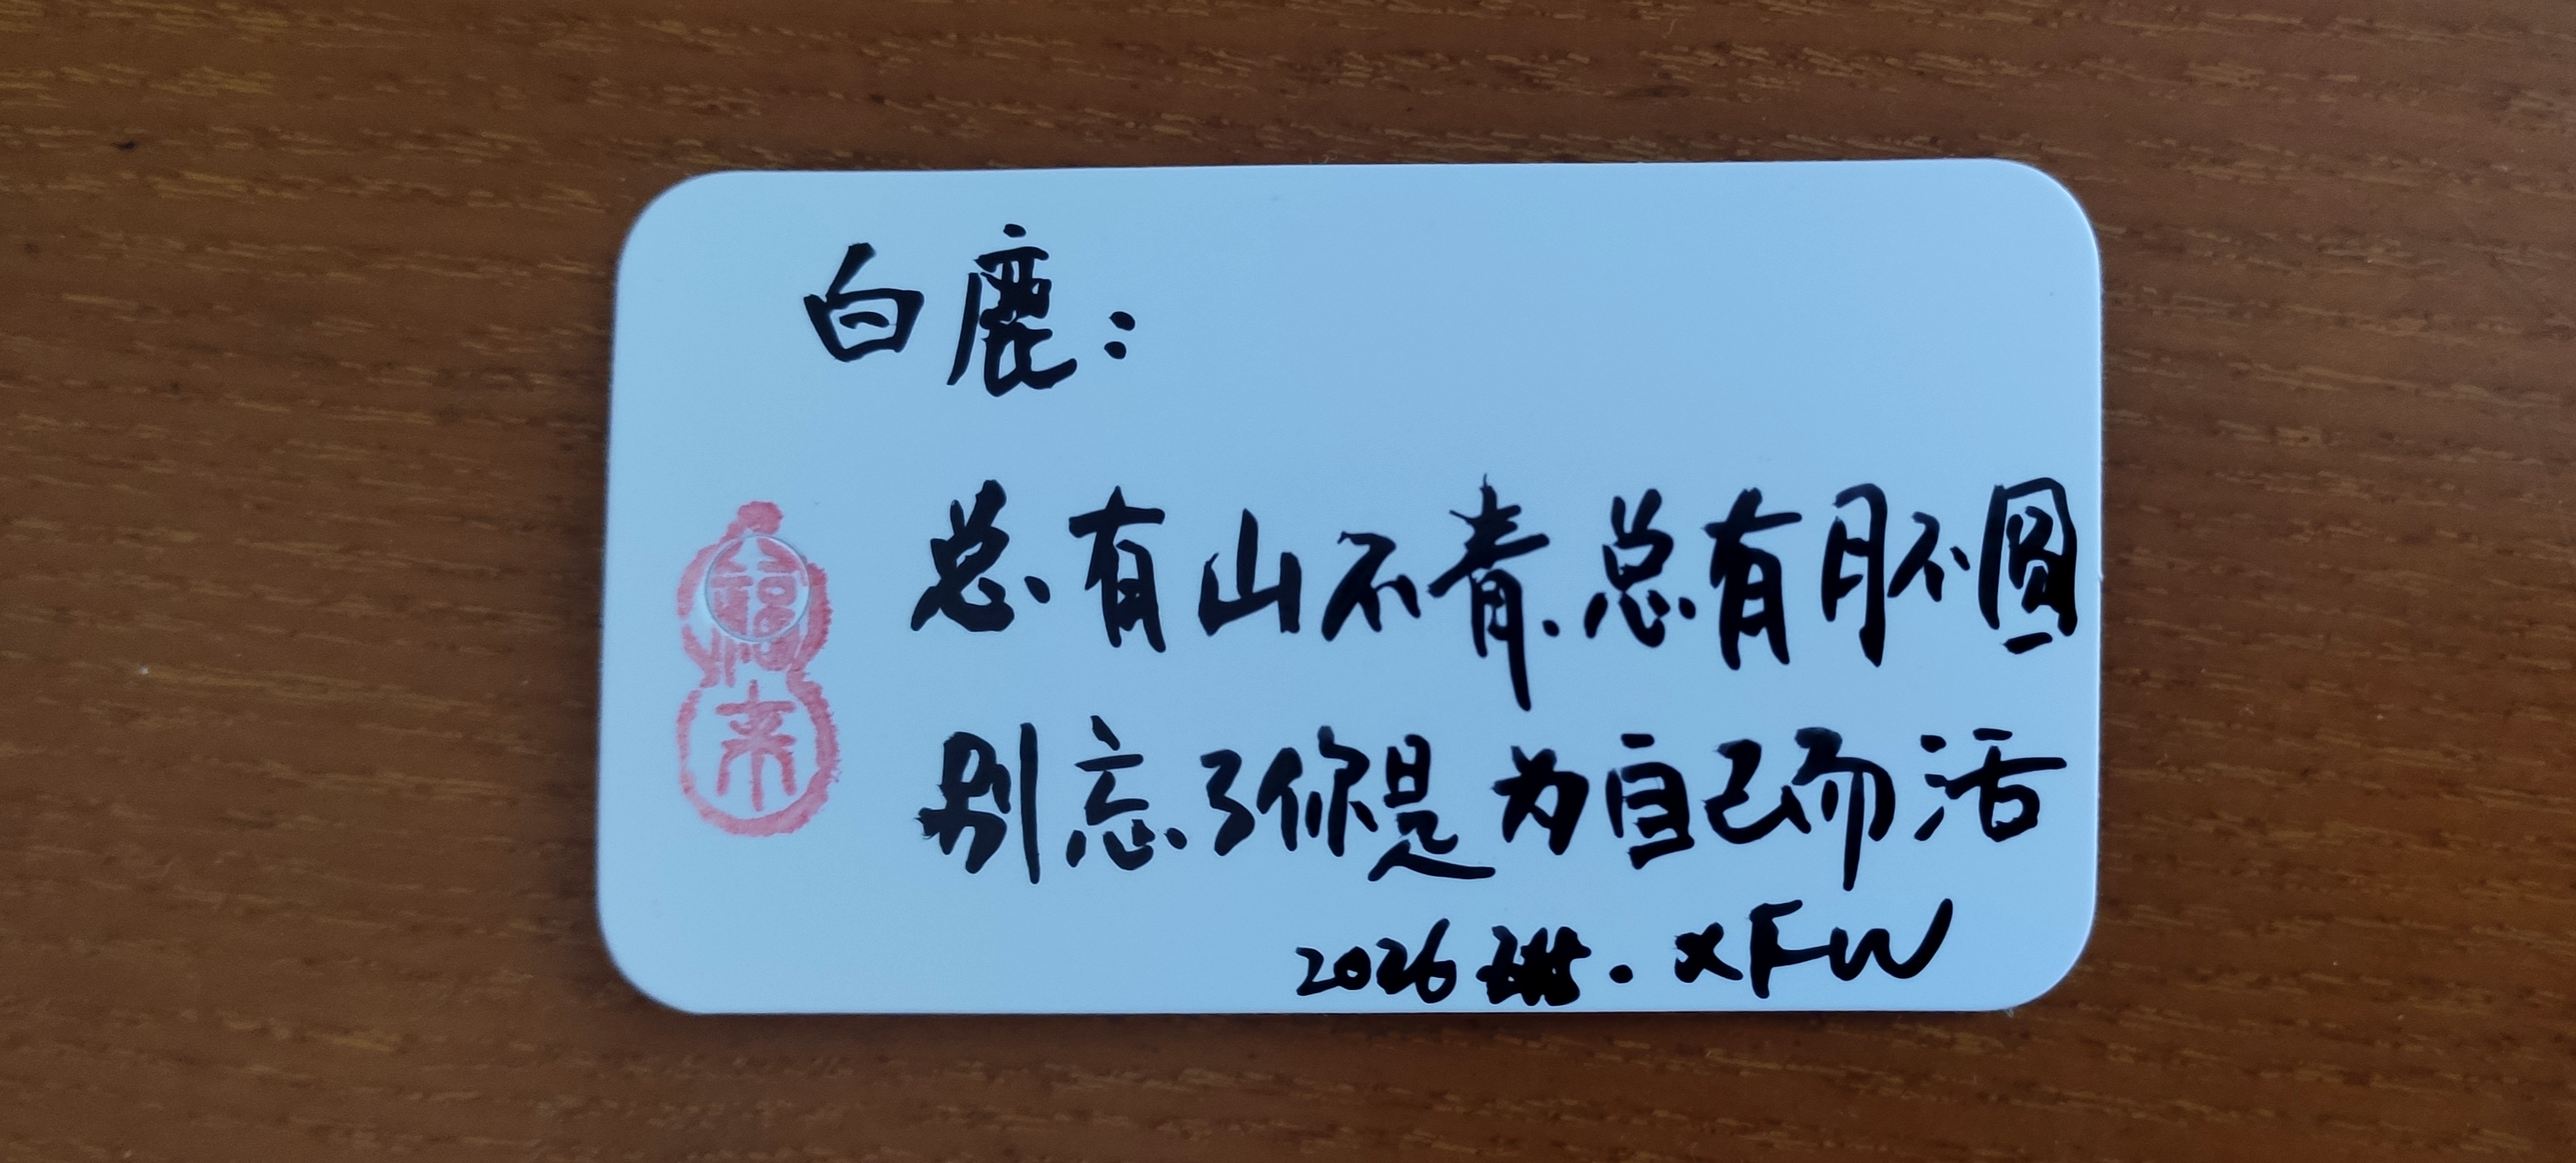 白鹿：
总有山不青.总有月不圆
别忘了你是为自己而活
2026 . XFW
福
来